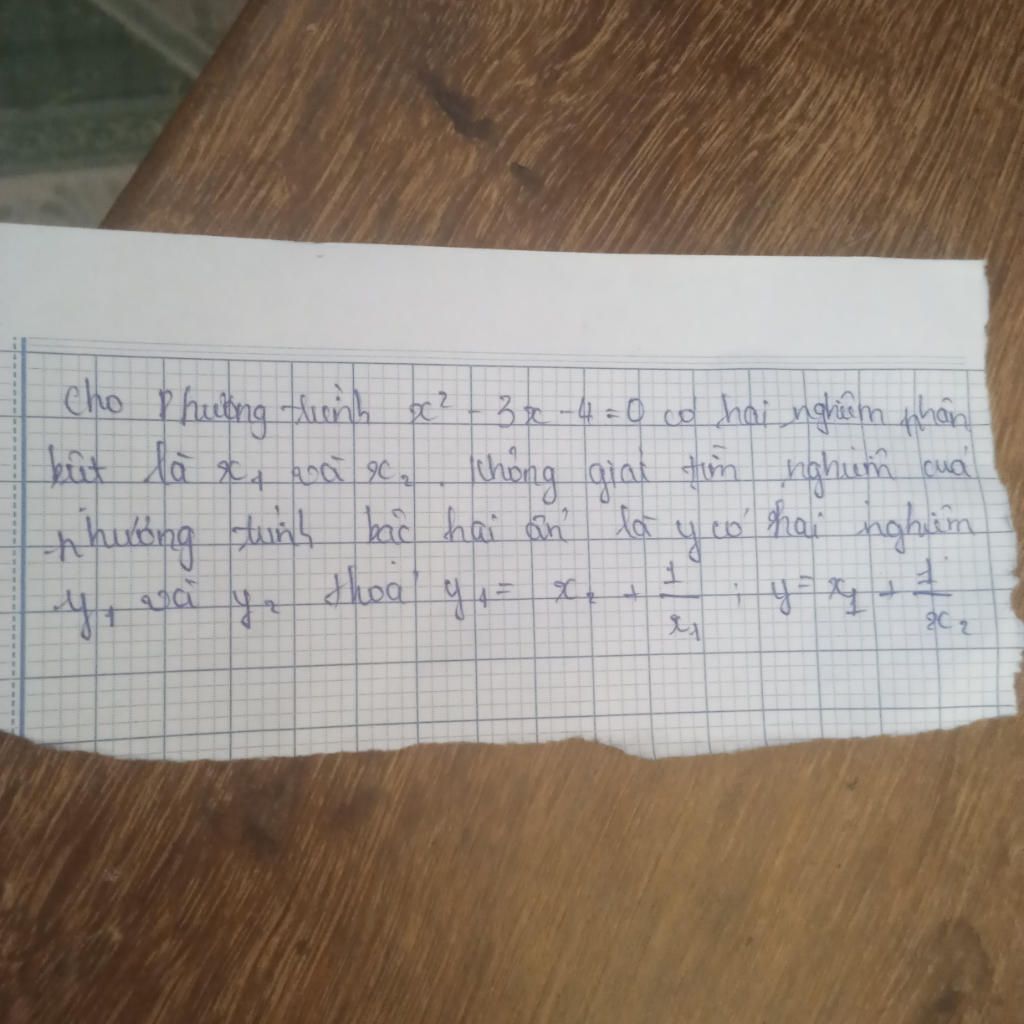 Cho phương trình x² - 3x - 4 = 0 có hai nghiệm phân
biệt là x₁ và x₂. Không giải tìm nghiệm của
phương trình bậc hai ẩn là y có hai nghiệm
y₁ và y₂ thoả y₁ = x₂ + 1/x₁ ; y = x₁ + 1/x₂